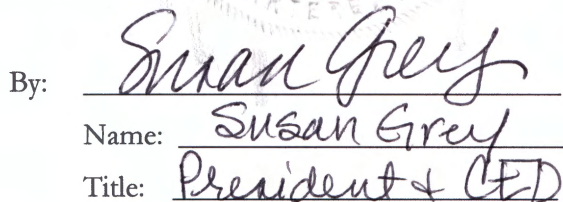 By: Susan Grey
Name: Susan Grey
Title: President & CEO